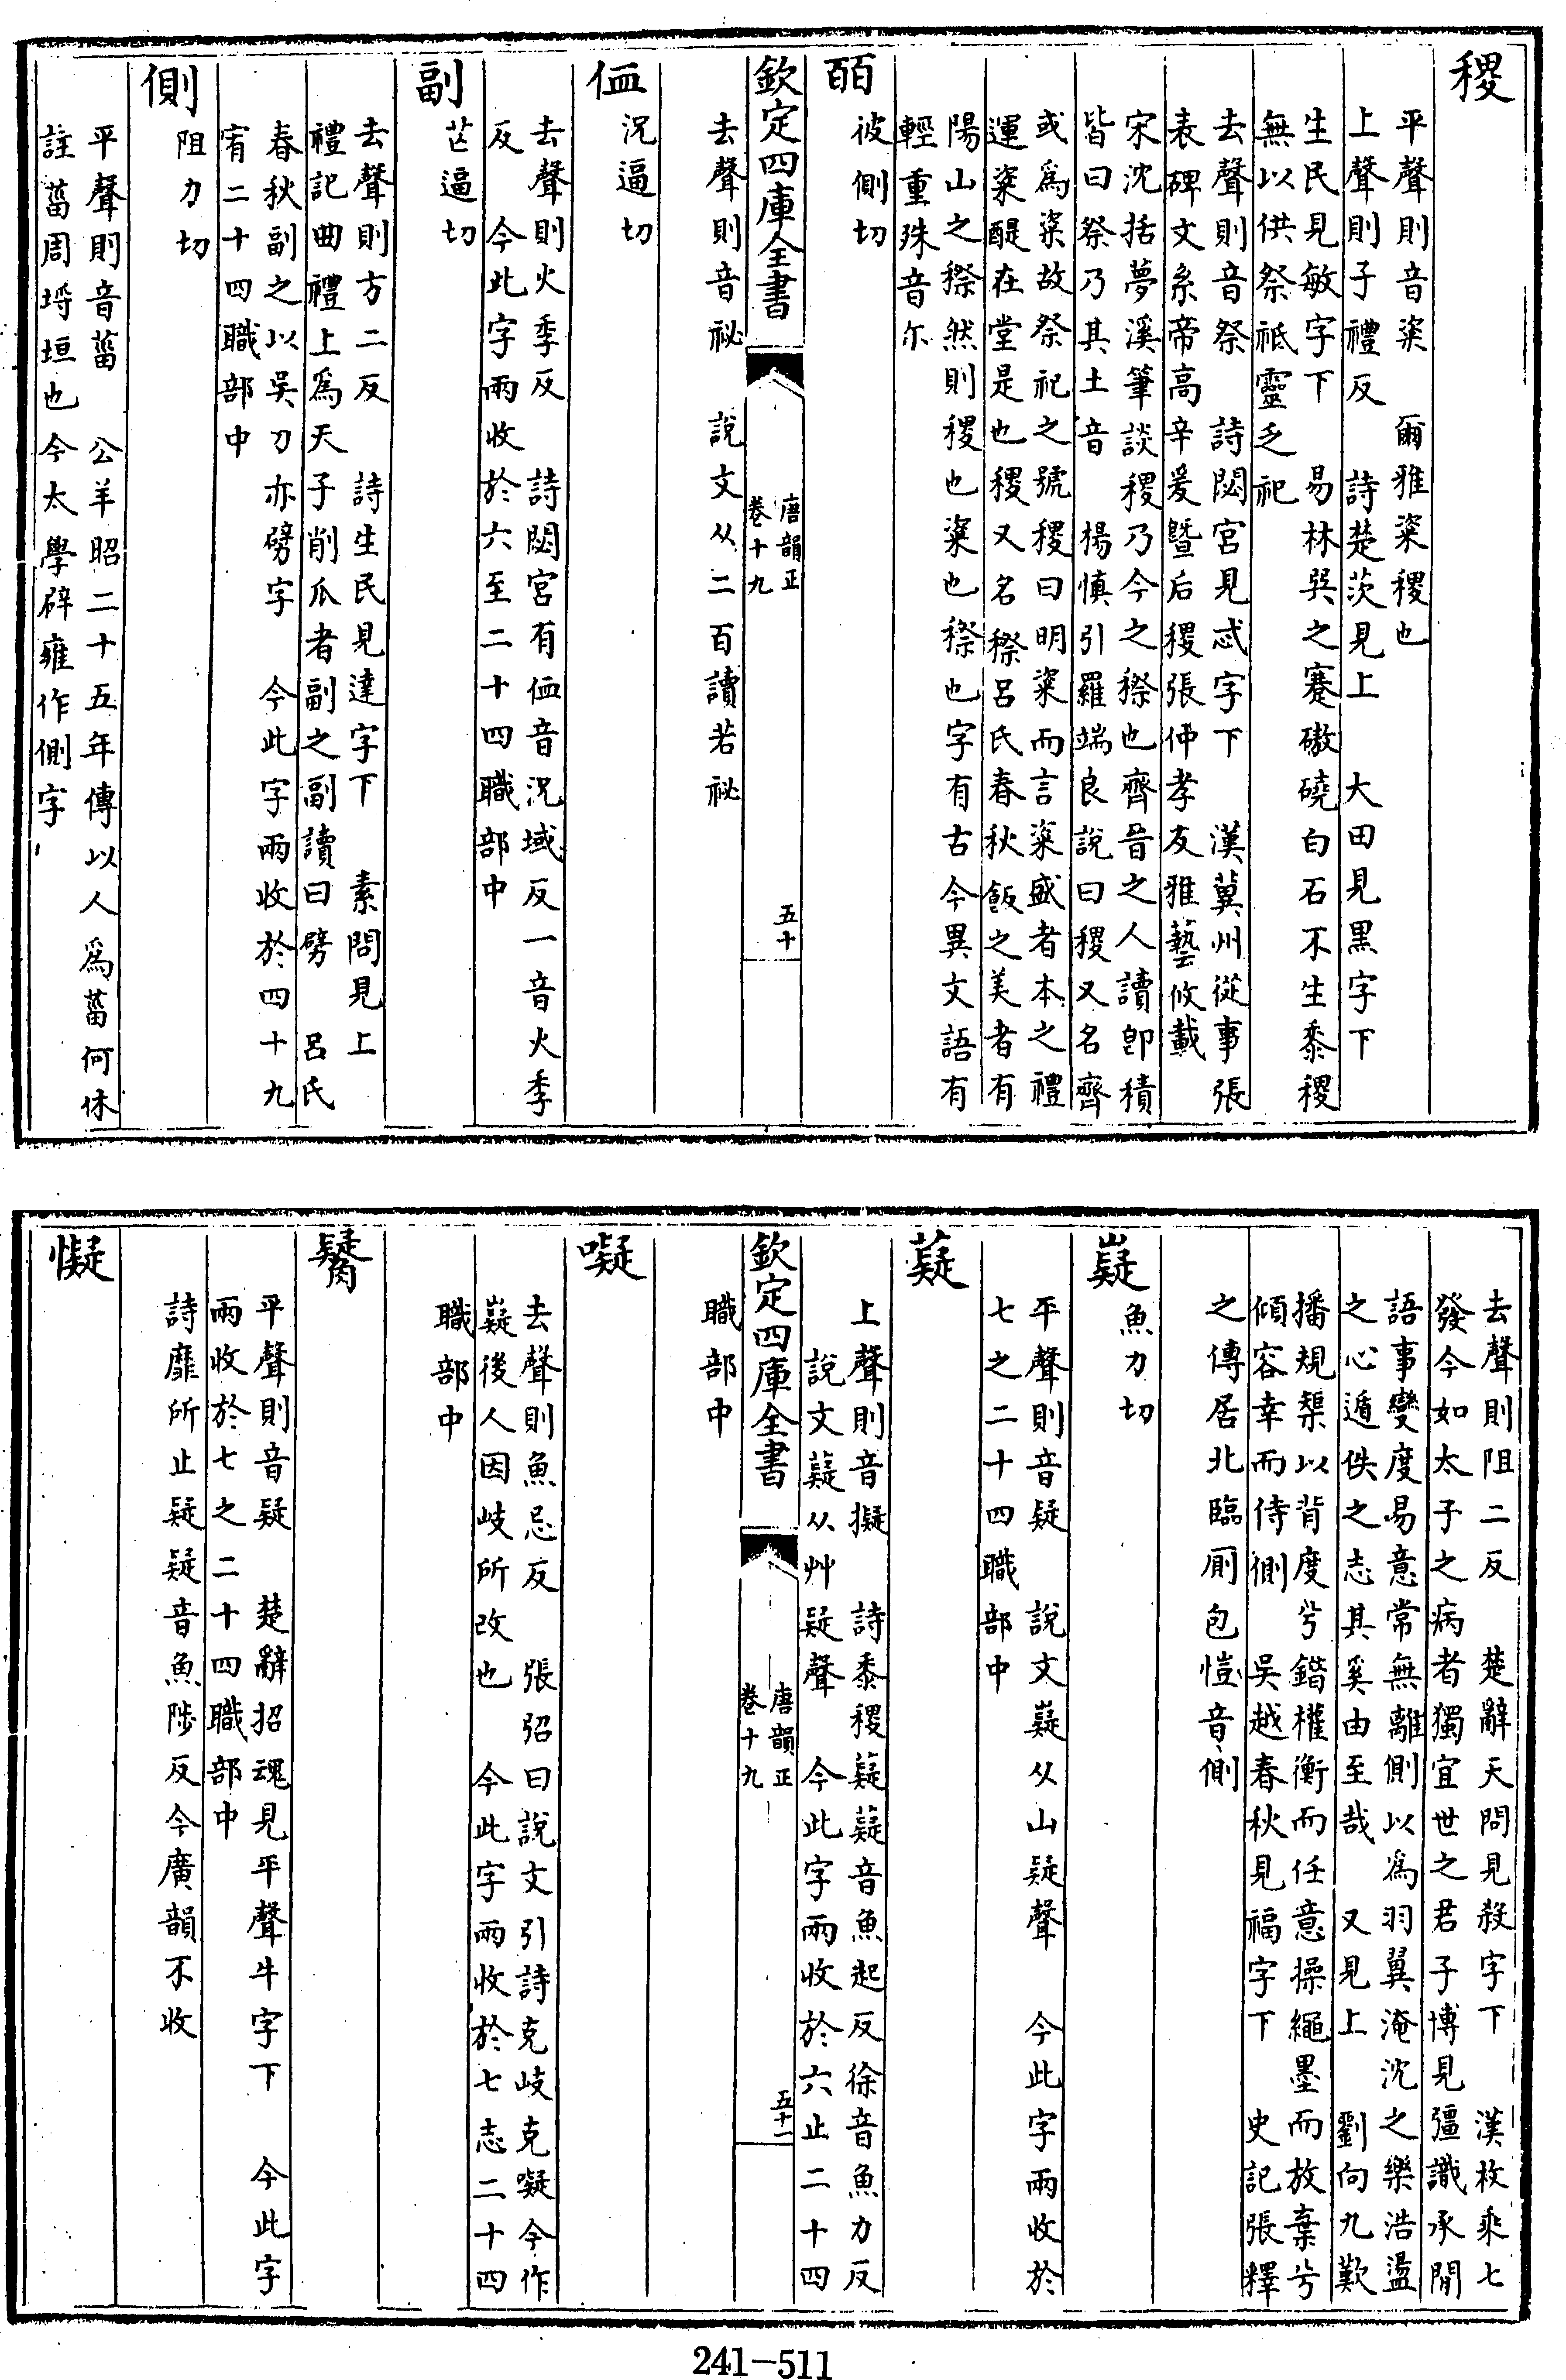 稷
平聲則音粢　爾雅粢稷也
上聲則子禮反　詩楚茨見上　大田見黑字下
生民見敏字下　易林㒷之蹇磝磽白石不生黍稷
無以供祭祗靈乏祀
去聲則音祭　詩閟宮見忒字下　漢冀州從事張
表碑文系帝高辛爰暨后稷張仲孝友雅藝攸載
宋沈括夢溪筆談稷乃今之穄也齊晉之人讀卽積
皆曰祭乃其土音　楊慎引羅端良說曰稷又名齊
或爲粢故祭祀之號稷曰明粢而言粢盛者本之禮
運粢醍在堂是也稷又名穄呂氏春秋飯之美者有
陽山之穄然則稷也粢也穄也字有古今異文語有
輕重殊音尓
皕
彼側切
去聲則音祕　說文从二百讀若祕
欽定四庫全書
唐韻正
卷十九
五十
侐
況逼切
去聲則火季反　詩閟宮有侐音況域反一音火季
反　今此字兩收於六至二十四職部中
副
芒逼切
去聲則方二反　詩生民見達字下　素問見上
禮記曲禮上爲天子削瓜者副之副讀曰劈　呂氏
春秋副之以吳刀亦劈字　今此字兩收於四十九
宥二十四職部中
側
阻力切
平聲則音菑　公羊昭二十五年傳以人爲菑何休
註菑周埓垣也今太學辟雍作側字
去聲則阻二反　楚辭天問見殺字下　漢枚乘七
發今如太子之病者獨宜世之君子博見彊識承閒
語事變度易意常無離側以爲羽翼淹沈之樂浩盪
之心遁佚之志其奚由至哉　又見上　劉向九歎
播規榘以背度兮錯權衡而任意操繩墨而放棄兮
傾容幸而侍側　吳越春秋見福字下　史記張釋
之傳居北臨厠包愷音側
嶷
魚力切
平聲則音疑　說文嶷从山疑聲　今此字兩收於
七之二十四職部中
薿
上聲則音擬　詩黍稷薿薿音魚起反徐音魚力反
說文薿从艸疑聲　今此字兩收於六止二十四
職部中
欽定四庫全書
唐韻正
卷十九
五十一
噬
去聲則魚忌反　張弨曰說文引詩克岐克噬今作
嶷後人因岐所改也　今此字兩收於七志二十四
職部中
觺
平聲則音疑　楚辭招魂見平聲牛字下　今此字
兩收於七之二十四職部中
詩靡所止疑疑音魚陟反今廣韻不收
懝
241-511